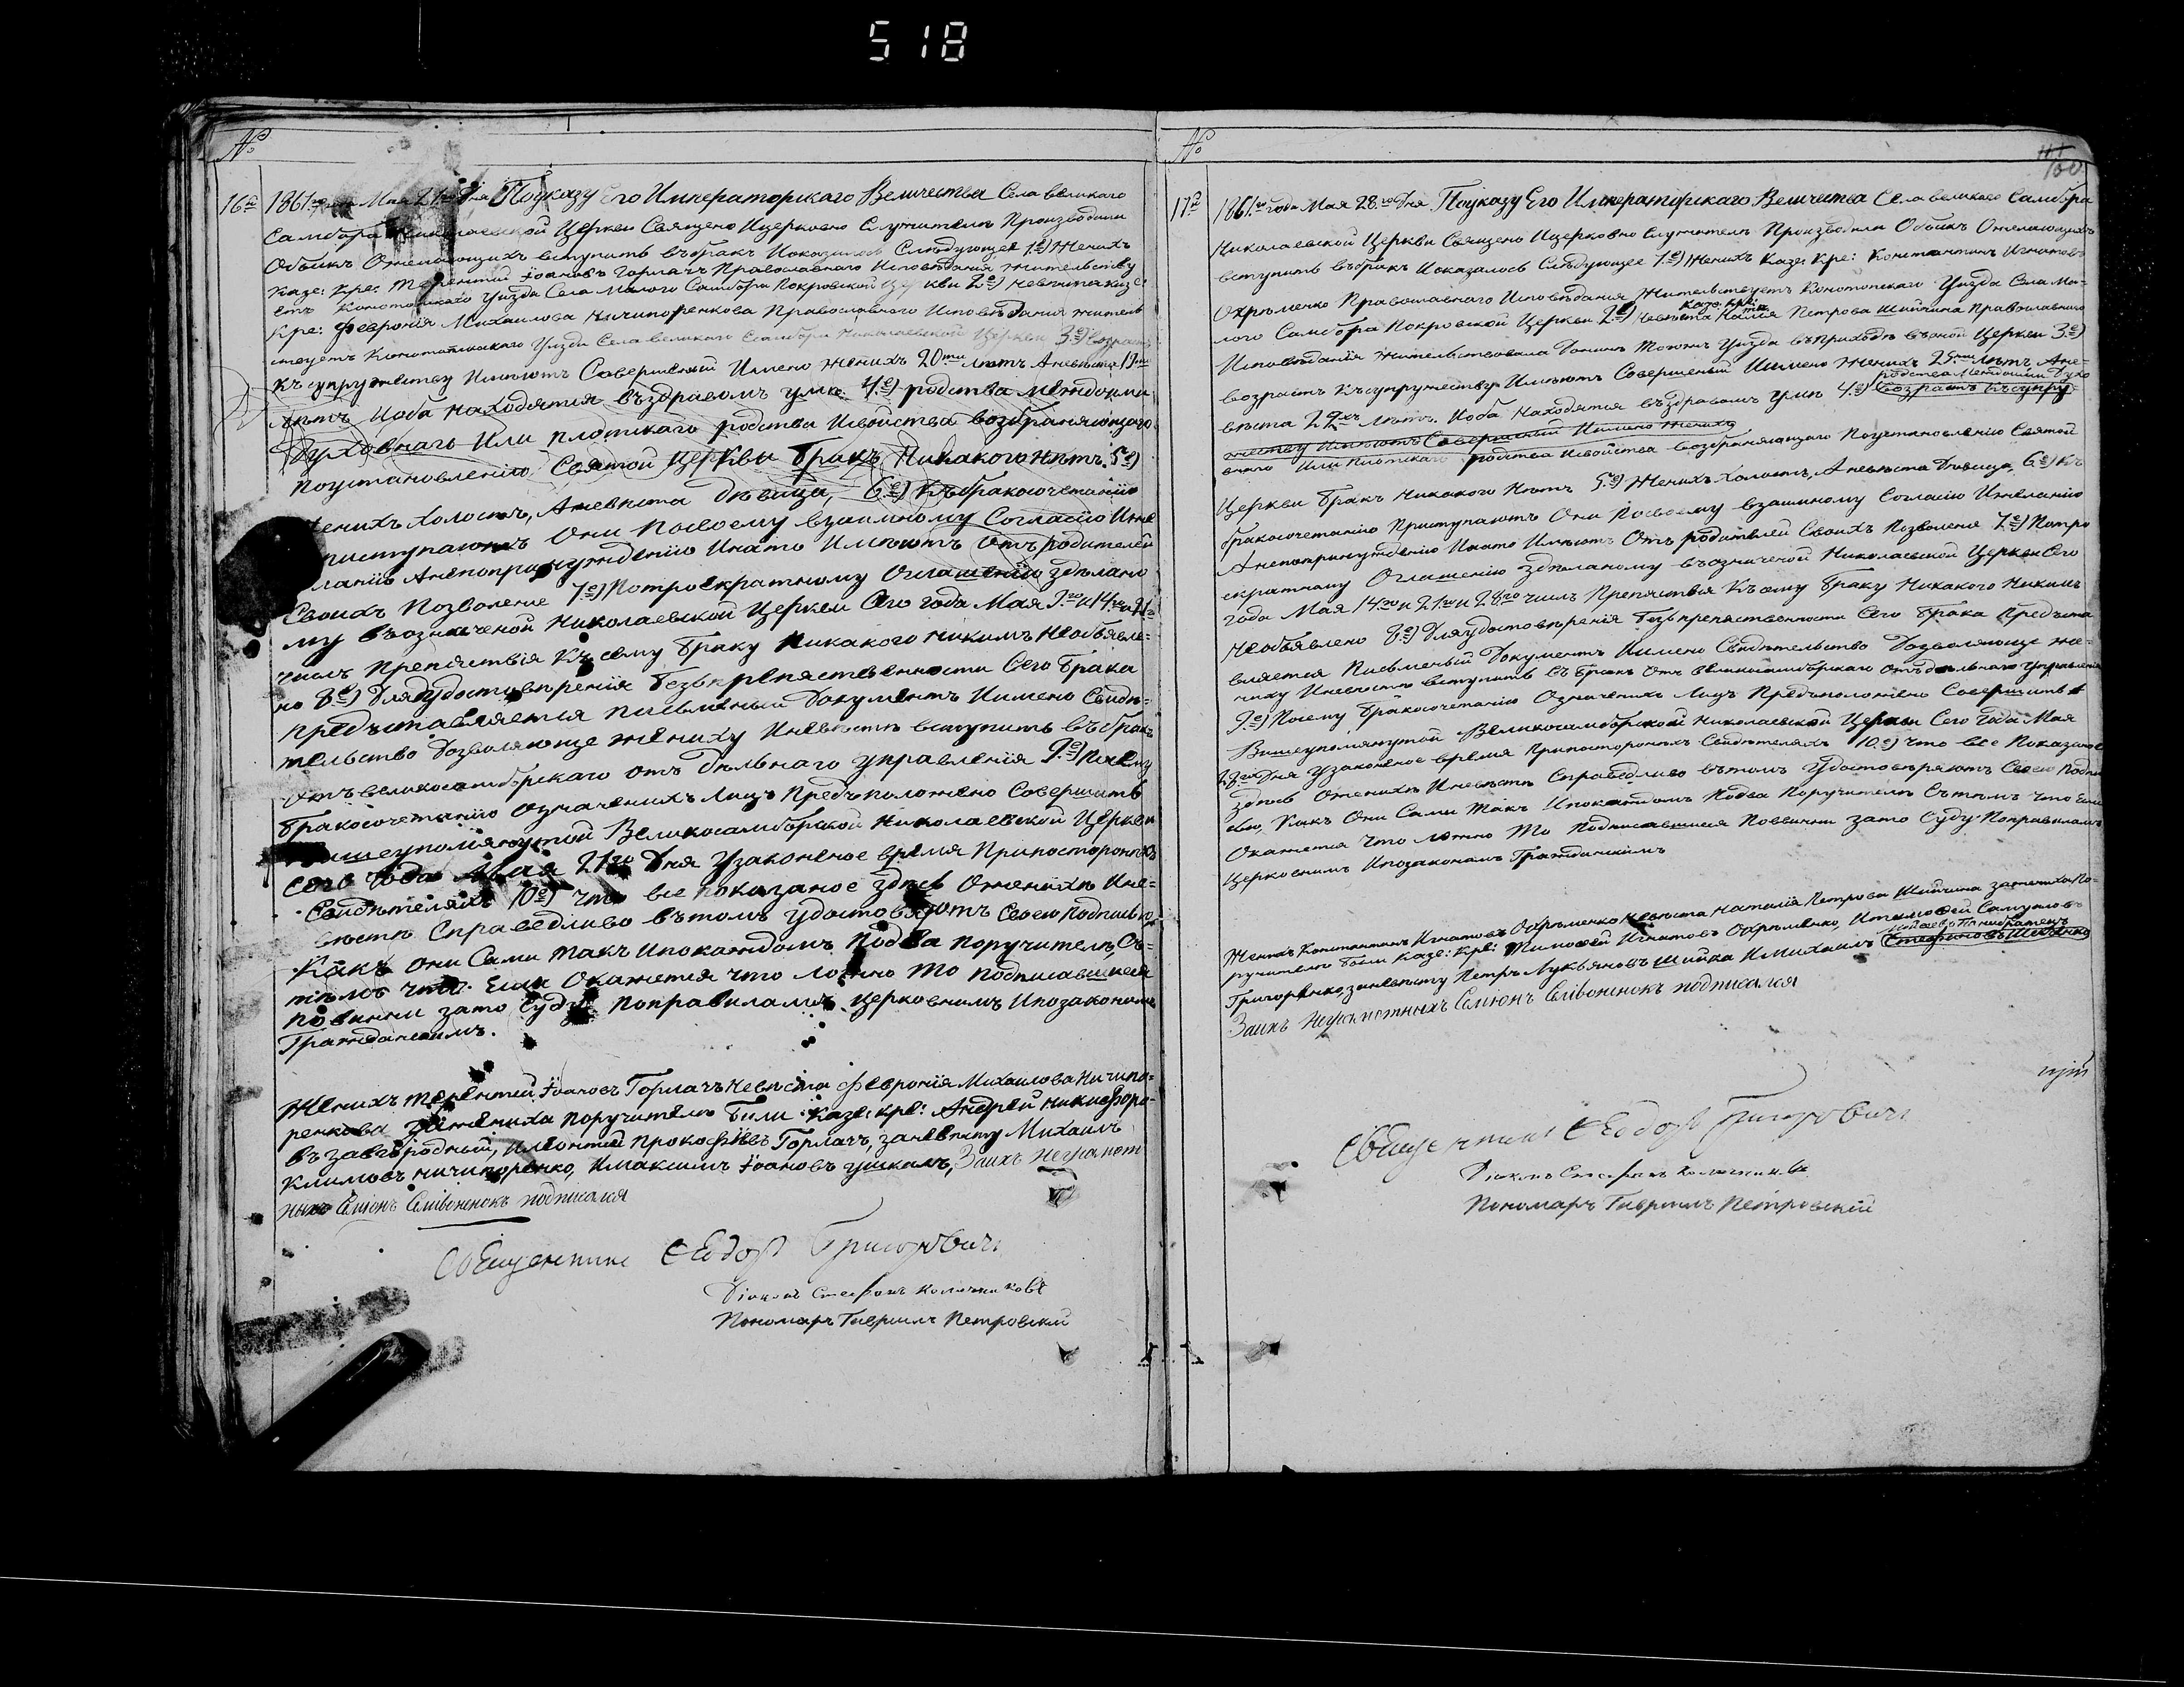 518
№
16й 1861го года Мая 21го Дня Поуказу Его Императорскаго Величества Села великаго
Самбора Николаевской Церкви Священо Ицерковно Служители Производили
Обыскъ Ожелающихъ вступить въбракъ Иоказалось Слѣдующее 1е) Женихъ
Казе: Кре: Терентий Іоановъ Горлачъ Православнаго Исповѣдания жительству
етъ Конотопскаго Уизда Села Малого Самбора Покровской Церкви 2е) Невѣста казе:
Кре: Феврония Михаилова Ничипоренкова Православного Исповѣдания житель
ствуетъ Конотопскаго Уизда Села великаго Самбора Николаевской Церкви 3е) Возрастъ
Късупружеству Имѣютъ Совершеный Имено Женихъ 20ти лѣтъ Аневѣста 19ти
лѣтъ Иоба находятся въздравомъ умѣ. 4е) родства междоими
Духовнаго Или плотскаго родства Исвойства возбраняющаго
Поустановленію Святой Церкви Бракъ Никакого нѣтъ. 5е)
Женихъ холостъ, Аневѣста дѣвица, 6е) Къбракосочетанию
приступаютъ Они Посвоему взаимному Согласію Иже
ланію Анепопринужденію Инато Имѣютъ Отъ родителей
Своихъ Позволение 7е) Потроекратному Оглашению здѣлано
му въозначеной Николаевской Церкви Сего года Мая 9го и 14го и 21го
числъ Препятствія Къ сему браку Никакого никимъ Необъявле=
но 8е) Для удостовѣрения безъпрепятственности Сего брака
предъставляется письменый Документъ Имено Свидѣ=
тельство Дозволяюще жениху Иневѣстѣ вступить въбракъ
Отъ великосамборскаго отъдѣльнаго управления 9е) Посему
бракосочетанию Означенихъ Лицъ Предъположено Совершить
вишеупомянутой Великосамборской Николаевской Церкви
Сего года Мая 21го Дня Узаконеное время Припостороннихъ
Свидѣтеляхъ 10е) что все показаное здѣсь Оженихѣ Ине=
вѣстѣ Справедливо вътомъ удостовѣряютъ Своею подписью
Какъ они Сами такъ Ипокаждомъ Подва поручителя, Съ=
тѣмъ что Если Окажется что ложно то подписавшиеся
повинни зато Суду Поправиламъ Церковнимъ Ипозаконамъ
Гражданскимъ.
Женихъ Терентий Іоановъ Горлачъ Невѣста Феврония Михаилова Ничипо=
ренкова зажениха поручители Били: Казе: Кре: Андрей Никифоро=
въ завгородный, Илеонтий Прокофиевъ Горлачъ, заневѣсту Михаилъ
Климовъ Ничипоренко, Имаксимъ Іоановъ Ушкалъ, Заихъ Неграмот
ныхъ Симіонъ Сливоненокъ подписался
Священникъ Феодоръ Григоровичъ
Діаконъ Стефанъ Колачниковъ
Пономаръ Гавриилъ Петровский
№
17й 1861го года Мая 28го Дня. Поуказу Его Императорскаго Величества Села великого Самбора
Николаевской Церкви Священо Ицерковно Служители Производили Обыскъ Ожелающихъ
вступить въбракъ Иоказалось Слѣдующее 1е) Женихъ Казе: Кре: Константинъ Игнатовъ
Охрѣменко Православнаго Исповѣдания, Жительствуетъ Конотопскаго Уизда Села Ма=
лого Самбора Покровской Церкви 2е) Невѣста казе: кре: Наталія Петрова Шийчина Православнаго
Исповѣданія жительствовала Донинѣ Тогожъ Уизда въприходѣ въоной Церкви 3е)
возрастъ Късупружеству Имѣютъ Совершеный Имено Женихъ 25ти лѣтъ Ане=
вѣста 22хъ лѣтъ. Иоба Находятся въздравомъ умѣ 4е) родства Междоими Духо
возрастъ късупру
жеству Имѣютъ Совершеный Имено Женихъ
внаго Или Плотскаго родства Исвойства возбраняющаго Поустановлению Святой
Церкви бракъ Никакого Нѣтъ 5е) Женихъ Холостъ, Аневѣста Дѣвица, 6е) Къ
бракосочетанию Приступаютъ Они Посвоему взаимному Согласію Ижеланию
Анепопринуждению Инато Имѣютъ Отъ родителей Своихъ Позволение 7е) Потро
екратному Оглашению здѣланому въозначеной Николаевской Церкви Сего
года Мая 14го и 21го и 28го числъ Препятствия Къ сему браку Никакого Никимъ
Необъявлено 8е) Дляудостовѣрения безъпрепятственности Сего брака Предъста
вляется Писменый Документъ Имено Свидѣтельство Дозволяюще же=
ниху Иневѣстѣ вступить въ бракъ Отъ великосамборскаго отъдѣльнаго управления
9е) Посему бракосочетанию Означенихъ Лицъ Предъположено Совершить в
Вишеупомянутой Великосамборской Николаевской Церкви Сего года Мая
28го Дня Узаконеное время Припосторонихъ Свидѣтеляхъ 10е) что все Показаное
здѣсь Оженихѣ Иневѣстѣ Справедливо вътомъ Удостовѣряютъ Своею Подпи
сью, Какъ Они Сами такъ Ипокаждомъ Подва Поручителя Сътѣмъ что Если
Окажется что ложно То Подписавшиеся Повинни зато Суду Поправиламъ
Церковнимъ Ипозаконамъ Гражданскимъ
Женихъ Константинъ Игнатовъ Охрѣменко Невѣста Наталія Петрова Шийчина зажениха По=
ручители были Казе: Кре: Тимофей Игнатовъ Охрѣменко, Итимофей Самуиловъ
Григоренко, заневѣсту Петръ Лукьяновъ Шийка Имихаилъ
Заихъ Неграмотныхъ Симіонъ Сливоненокъ подписался
Священникъ Феодоръ Григоровичъ
Діаконъ Стефанъ Колачниковъ
Пономаръ Гавриилъ Петровский